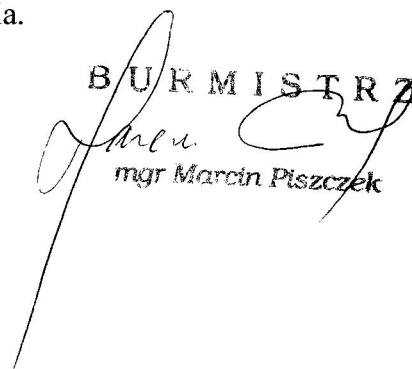 ia.
BURMISTRZ
mgr Marcin Piszczek